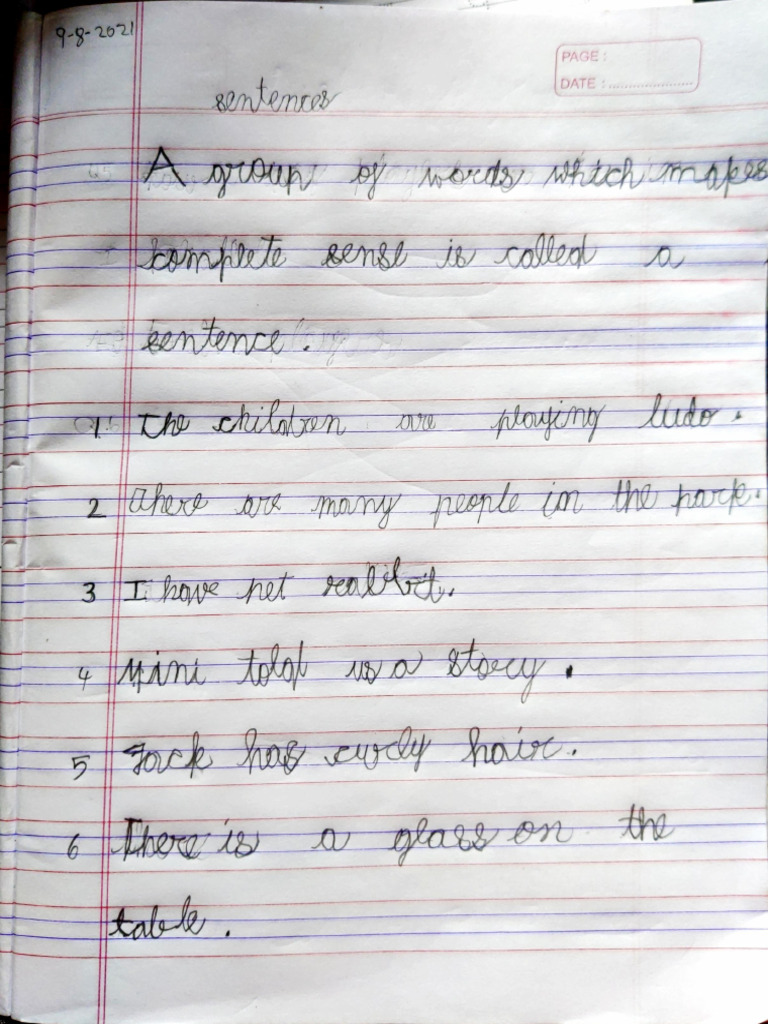 9-8-2021
PAGE :
DATE : ....................
sentences
A group of words which makes
complete sense is called a
sentence.
1. The children are playing ludo.
2 There are many people in the park.
3 I have pet rabbit.
4 Mini told us a story.
5 Jack has curly hair.
6 There is a glass on the
table.